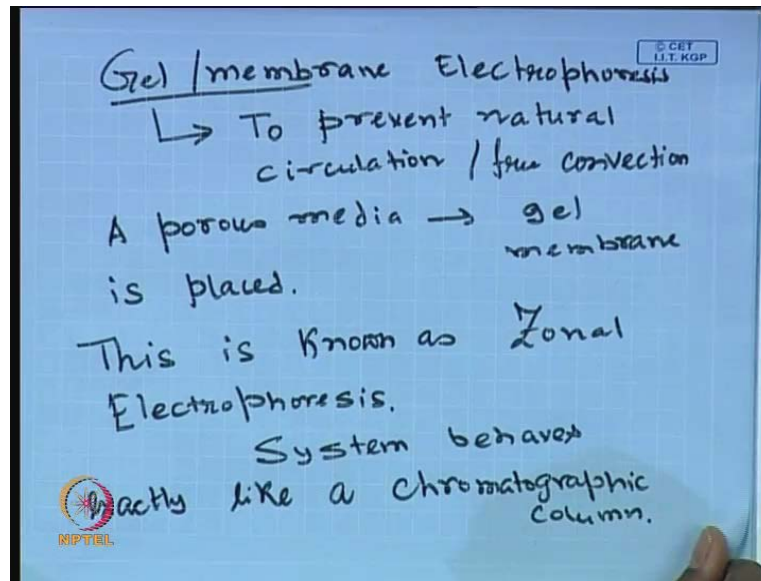 © CET
I.I.T. KGP
Gel / membrane Electrophoresis
↳ To prevent natural
circulation / free convection
A porous media → gel
membrane
is placed.
This is known as Zonal
Electrophoresis.
System behaves
Exactly like a chromatographic
column.
NPTEL